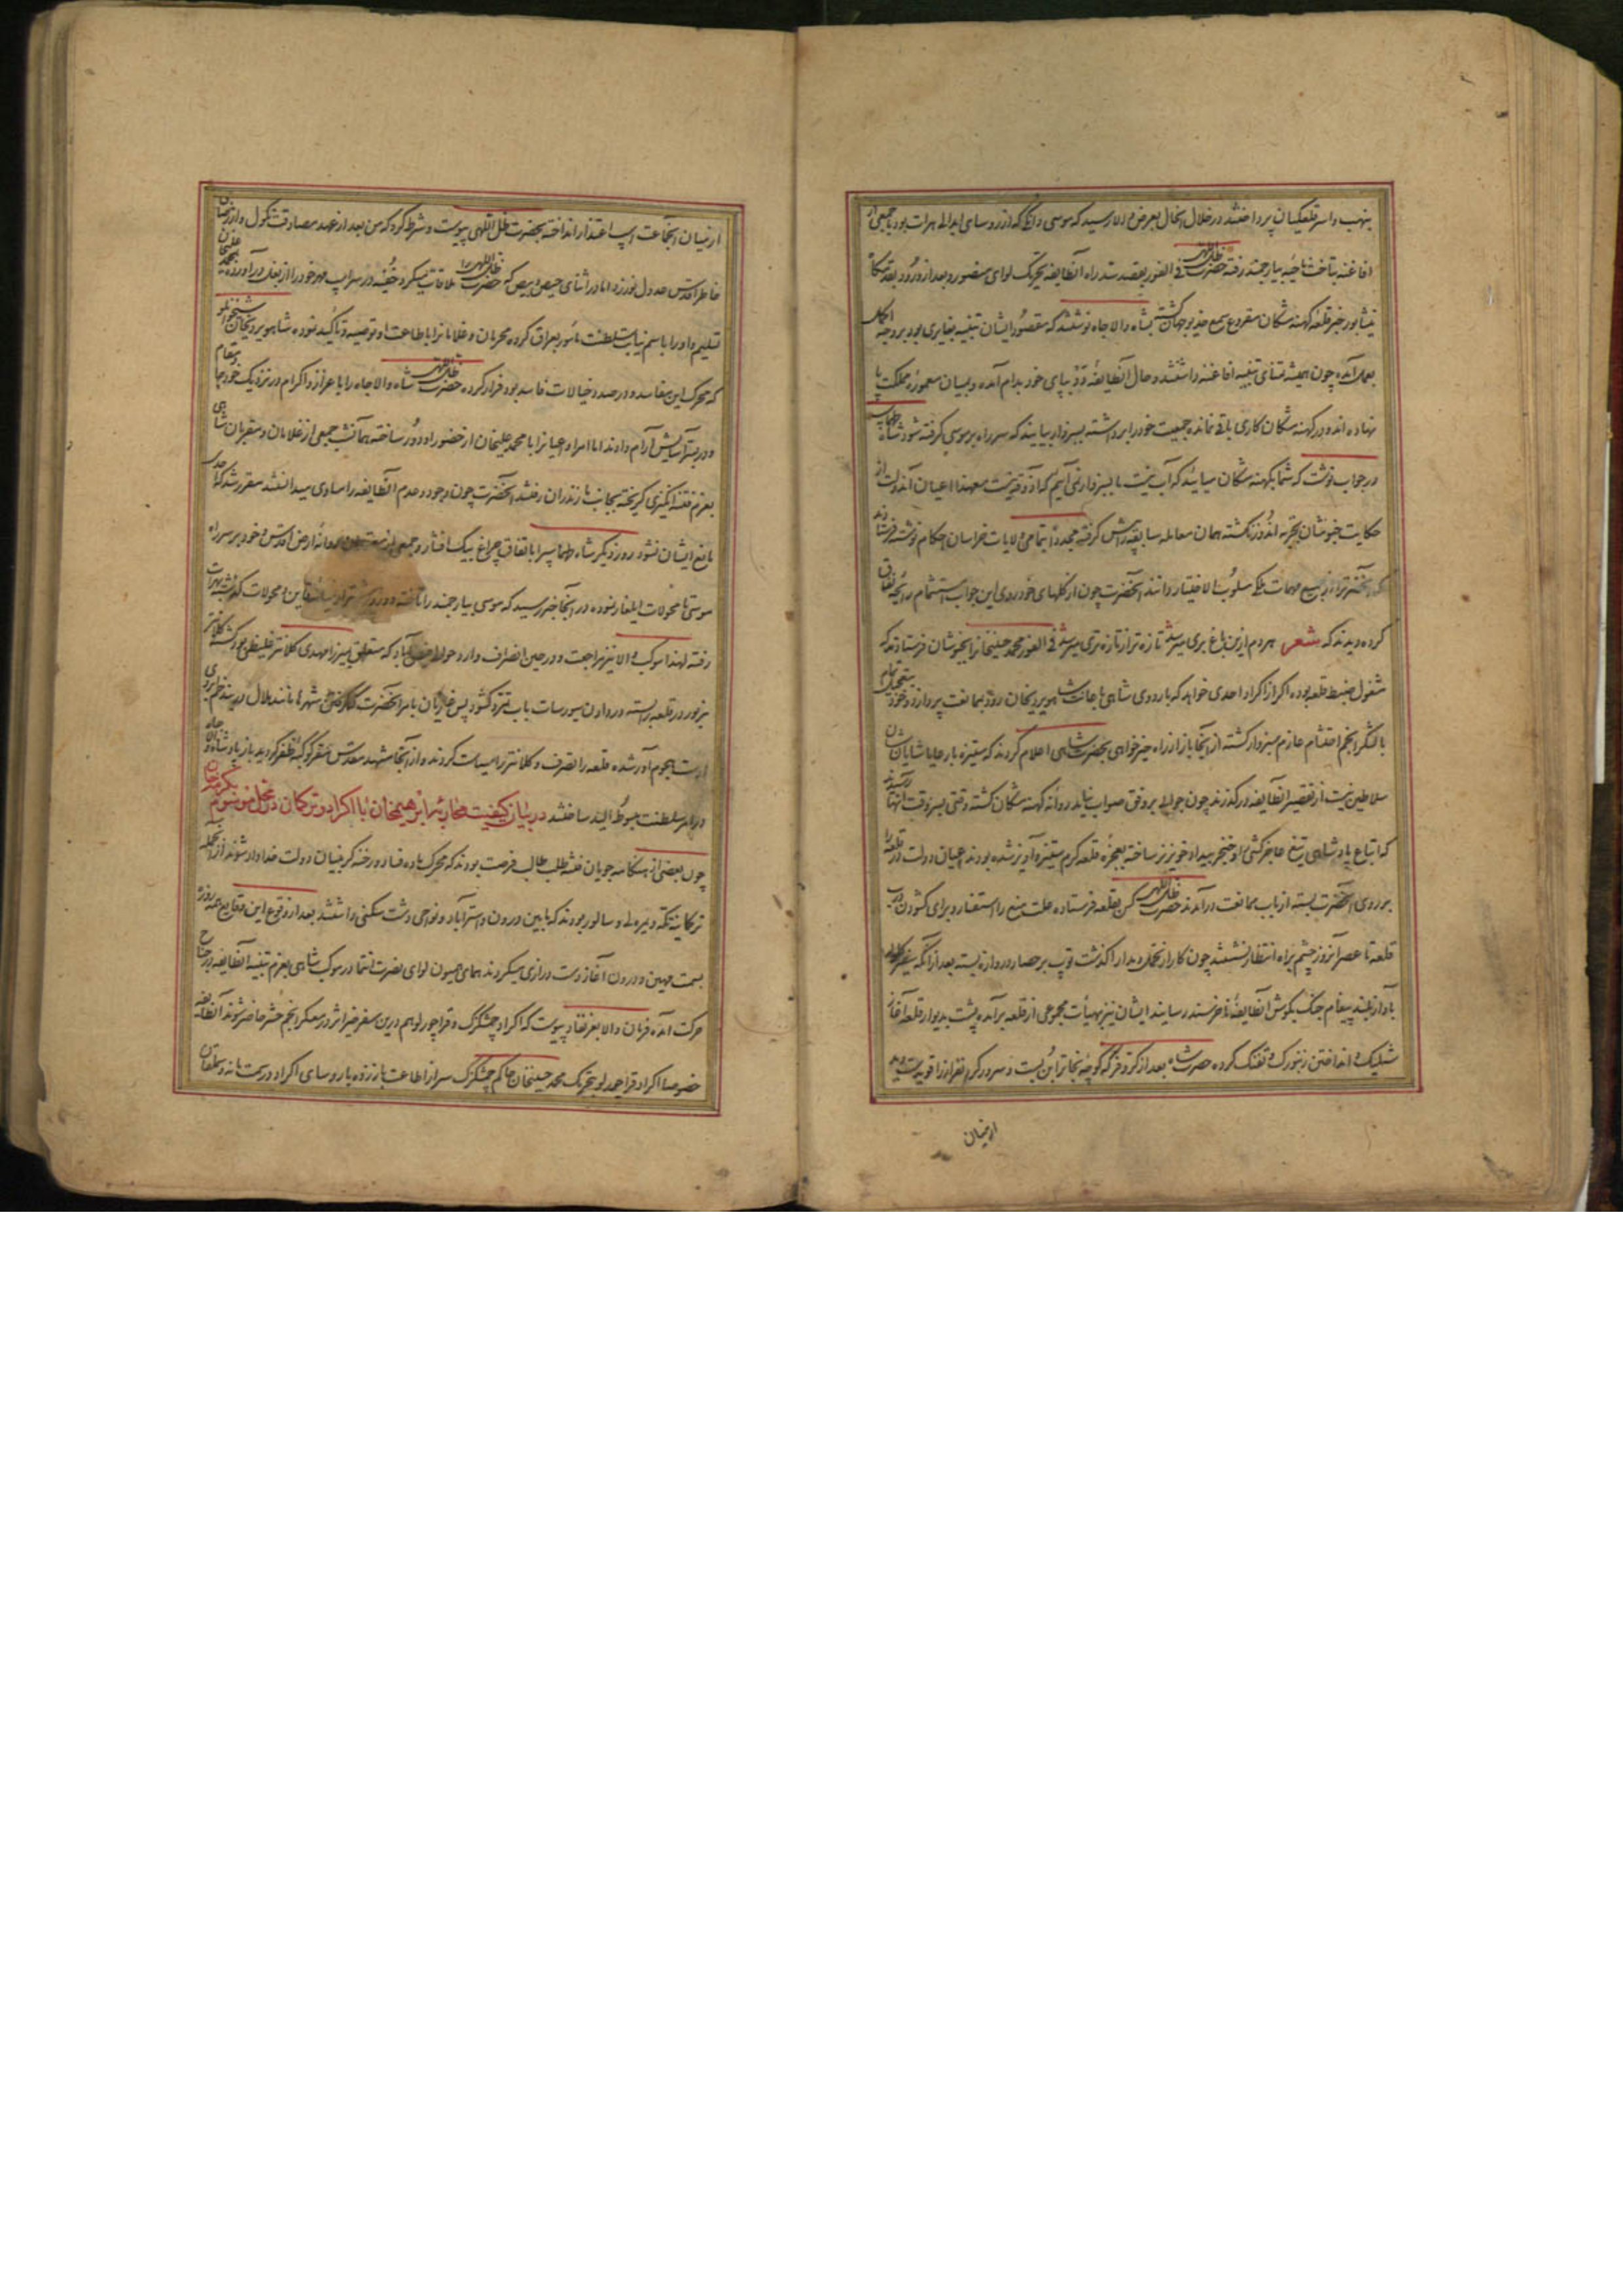 بنهب و اسر قلعکیان پرداختند در خلال اینحال بعرض والا رسید که موسی دانکی که از روسای ابدالی هرات بود با جمعی از
افاغنه بتاخت ناحیه بیارجمند رفته حضرت ظل اللهی فی الفور بقصد سد راه آنطایفه تحریک لوای منصور و بعد از ورود بقدمگاه
نیشابور خبر قلعه کهنه مشکان مقروع سمع خدیو جهان گشته بشاه والاجاه نوشتند که مقصود ایشان تنبیه بغایری بود بر وجه اکمل
بعمل آمده چون همیشه تمنای تنبیه افاغنه داشتند و حال آنطایفه بپای خود بدام آمده و بمیان معموره مملکت پا
نهاده اند و در کهنه مشکان کاری باقی نمانده جمعیت خود را برداشته بسبزوار بیایند که سر راه بر موسی گرفته شود شاه طهماسب
در جواب نوشت که شما بکهنه مشکان بیائید که آب نیست ما بسبزوار نمی آئیم که آذوقه نیست معهذا اعیان آندولت از
حکایت خبوشان تجربه اندوز نگشته همان معامله سابقه را پیش گرفته مجددا بتمامی ولایات خراسان احکام نوشته فرستادند
که آنحضرت را از جمیع مهمات ملکی مسلوب الاختیار دانند آنحضرت چون از گلهای خودروی این جواب استشمام رایحه نفاق
کرده دیدند که شعر هر دم ازین باغ بری میرسد تازه تر از تازه تری میرسد فی الفور محمد حسینخانرا بخبوشان فرستادند که
مشغول ضبط قلعه بوده اگر از اکراد احدی خواهد که باردوی شاهی با جانب شاهویردیخان رود بممانعت پردازد و خود بتعجیل تمام
با لشکر انجم احتشام عازم سبزوار گشته از آنجا باز از راه خیرخواهی بحضرت شاهی اعلام کردند که ستیزه با رعایا شایان شان
سلاطین نیست از تقصیر آنطایفه درگذرند چون جوابی بر وفق صواب نیامد روانه کهنه مشکان گشته وقتی بسروقت آنها رسیدند
که اتباع پادشاهی تیغ عاجزکشی و خنجر بیداد خونریز ساخته بعجزه قلعه گرم ستیز و آویز شده بودند اعیان دولت در قلعه را
بر روی آنحضرت بسته از باب ممانعت درآمدند حضرت ظل اللهی کس بقلعه فرستاده علت منع را استفسار و برای گشودن درب
قلعه تا عصر آنروز چشم براه انتظار نشستند چون کار از تحمل و مدارا گذشت توپ بر حصار و دروازه بسته بعد از آنکه سفیر گلوله
بآواز بلند پیغام جنگ بگوش آنطایفه ناخرسند رسانید ایشان نیز بهیأت مجموعی از قلعه برآمده پشت بدیوار قلعه آغاز
شلیک و انداختن زنبورک و تفنگ کرده حضرت شاه بعد از کر و فر که کوچه نجات را بن بست و سررشته
ازمیان
از میان آنجماعت اسب اعتذار انداخته بحضرت ظل اللهی پیوست و شرط کرد که من بعد از عهد مصادقت نکول و از رضای
خاطر اقدس عدول نورزد اما در اثنای حیص و بیص که حضرت ظل اللهی را ملاقات میکرد خفیه در سر اسب مهر خود را از بغل درآورده بمحمد علیخان
تسلیم و او را باسم نیابت سلطنت مامور بعراق کرده محرمان و غلامانرا باطاعت او توصیه و تاکید نموده شاهویردیخان شیخوانلو
که محرک این مفاسد و در صدد خیالات فاسد بود فرار کرده حضرت ظل اللهی شاه والاجاه را با اعزاز و اکرام در نزدیک خود جا و مقام
و در بستر آسایش آرام دادند اما امرا و اعیانرا با محمد علیخان از حضور او دور ساخته همانشب جمعی از غلامان و مقربان شاهی
بعزم فتنه انگیزی گریخته بجانب مازندران رفتند آنحضرت چون وجود و عدم آنطایفه را مساوی میدانستند مقرر شد که احدی
مانع ایشان نشود روز دیگر شاه طهماسب را باتفاق چراغ بیک افشار و جمعی از معتمدان روانه ارض اقدس و خود بر سر راه
موسی تا محولات ایلغار نموده در آنجا خبر رسید که موسی بیارجمند را تاخته و قاین و محولات گذشته بهرات
رفته لهذا موکب والا نیز مراجعت و در حین انصراف وارد حوالی آباد که متعلق بمیرزا مهدی کلانتر بود گشته کلانتر
مزبور در قلعه را بسته در دادن سیورسات باب تمرد گشود پس غازیان بامر آنحضرت
هجوم آور شده قلعه را تصرف و کلانتر را سیاست کردند و از آنجا مشهد مقدس مقر کوکبه ظفر گردید باز پادشاه والاجاه
در امر سلطنت مبسوط الید ساختند در بیان کیفیت محاربه ابراهیمخان با اکراد و ترکمان در محل موسوم بکرمه خان
چون بعضی از هنگامه جویان فتنه طلب طالب فرصت بودند که محرک ماده فساد و رخنه گر بنیان دولت خداداد شوند از آنجمله
ترکمانیه تکه و یمرلی و سالور بودند که مابین درون و استرآباد و نواحی دشت سکنی داشتند بعد از وقوع این وقایع همه روزه
بسمت مهین و درون آغاز دست درازی میکردند همای همیون لوای نصرت انتما در موکب شاهی بعزم تنبیه آنطایفه در جناح
حرکت آمده فرمان والا بعز نفاذ پیوست که اکراد چمشگزک و قراچورلو هم درین سفر خیر اثر در معسکر انجم حشر حاضر شوند آنطایفه
خصوصا اکراد قراچورلو بتحریک محمد حسینخان حاکم چمشگزک سر از اطاعت باز زده با روسای اکراد